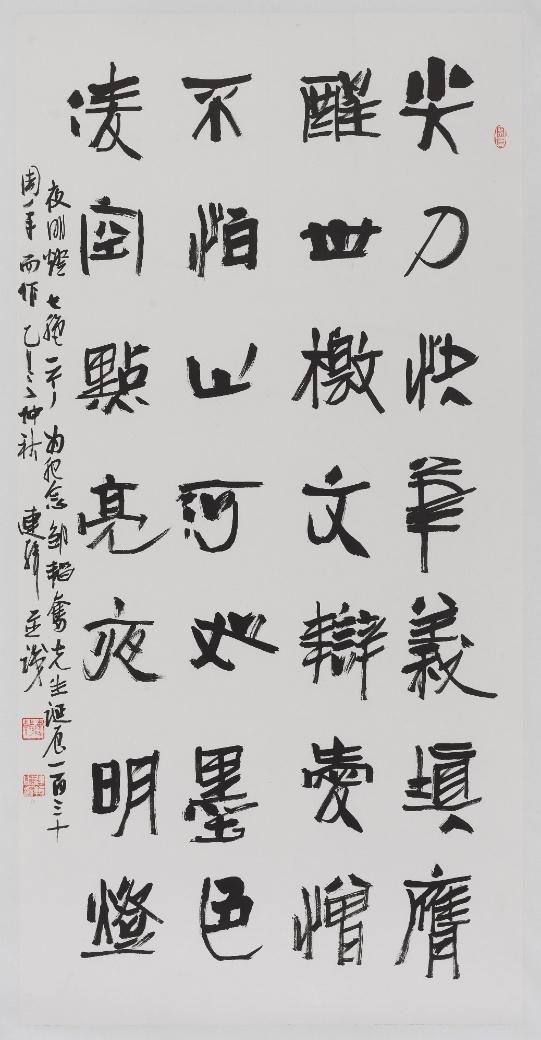 尖刀快筆義填膺
醒世檄文辯愛憎
不怕山河如墨色
凌空點亮夜明燈
夜明燈七絕一首為紀念鄒韜奮先生誕辰一百三十
周年而作乙巳仲秋連並識